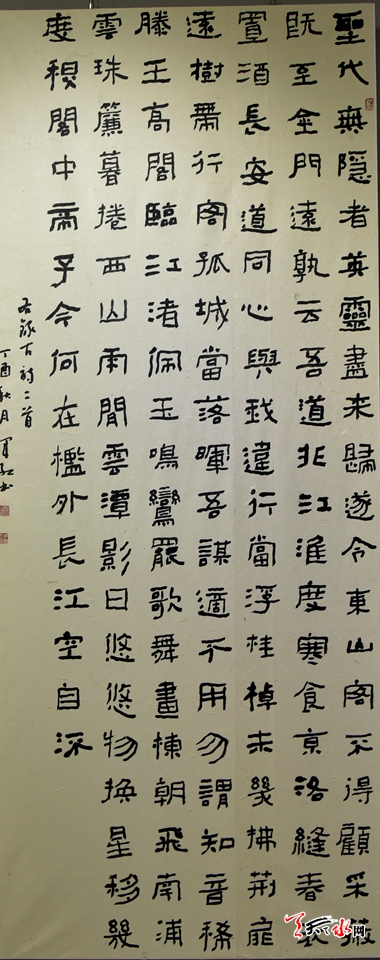 聖代無隱者英靈盡來歸遂令東山客不得顧采薇
既至金門遠孰云吾道非江淮度寒食京洛縫春衣
置酒長安道同心與我違行當浮桂棹未幾拂荊扉
遠樹帶行客孤城當落暉吾謀適不用勿謂知音稀
滕王高閣臨江渚佩玉鳴鸞罷歌舞畫棟朝飛南浦
雲珠簾暮捲西山雨閒雲潭影日悠悠物換星移幾
度秋閣中帝子今何在檻外長江空自流
右錄古詩二首
丁酉秋月書
天水网